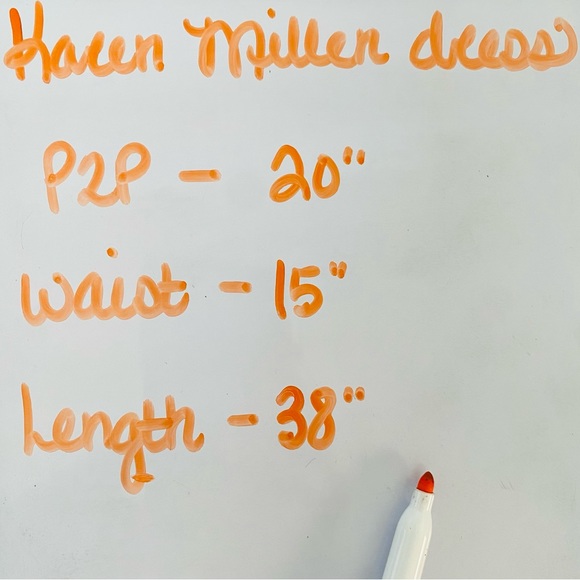 Karen Millen dress
P2P - 20"
Waist - 15"
Length - 38"